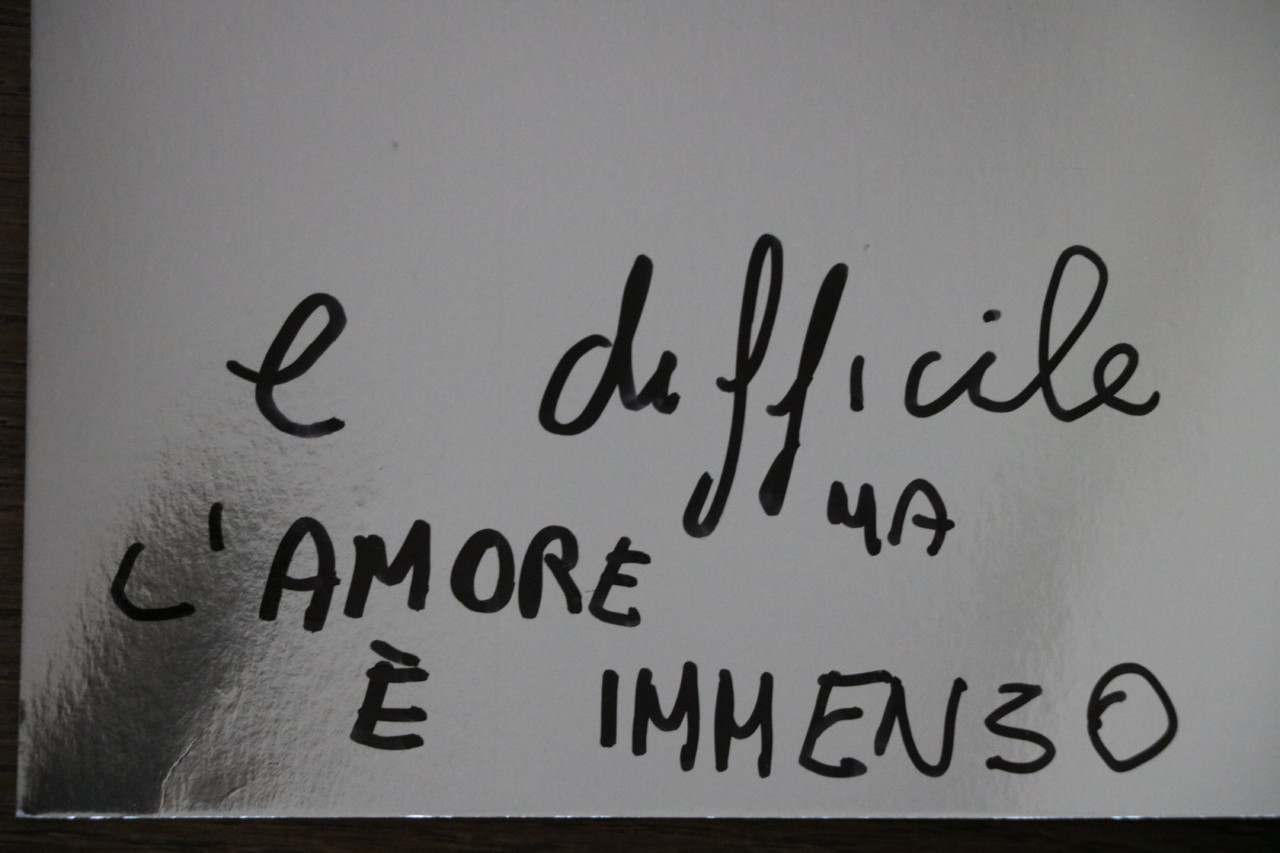 e difficile
MA
L'AMORE
È IMMENSO